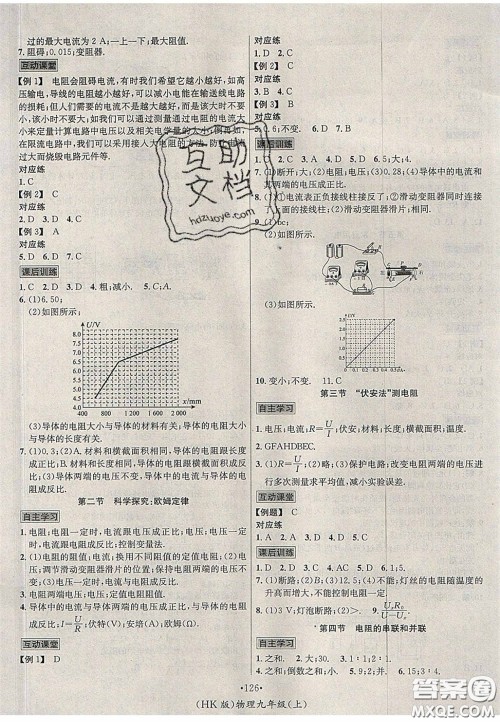 过的最大电流为 2 A;一上一下;最大阻值.
7. 阻碍;0.015;变阻器.
互动课堂
【例 1】 电阻会阻碍电流,有时我们希望它越小越好,如高
压输电,导线的电阻越小越好,因为这样可以减小输电线路
的损耗;但人们需要的电流不是越大越好,而是该大时不要
小,该小时不要大,
小来定量计算电路中电压以及相关电学量的大小;例再如
在限流电路中,我们可以采用接入大电阻的方法,防止电流
过大而烧毁电路元件等.
对应练
1. C
【例 2】 C
对应练
2. D 3. D 4. C
【例 3】 A
对应练
5. D 6. D 7. C
课后训练
1. C 2. D 3. D 4. 粗;减小. 5. C;A.
6. (1)6.50;
(2)如图所示.
U/V
8.0
7.5
7.0
6.5
6.0
5.5
5.0
4.5
4.0
400 800 1200 1600 2000 x/mm
(3)导体的电阻大小与导体的材料有关;导体的电阻大
小与导体的长度有关.
7. (1)0.3;(2)A. 材料和横截面积、导体的电阻跟长度
成正比;B. 材料和长度、导体的电阻跟横截面积成反
比;(3)导体的电阻不变,导体的电阻跟电压、电流无关.
第二节 科学探究:欧姆定律
自主学习
1. 电阻;电阻一定时,电流跟电压成正比;电压;电压一
定时,电流跟电阻成反比;控制变量法.
2. (1)电阻的阻值;电流;换用不同阻值的定值电阻;
(2)调节滑动变阻器滑片的位置;保持电阻两端的电压不
变;(3)保护电路.
3. 定值电阻两端电压;定值电阻阻值.
4. 导体中的电流与导体两端的电压成正比,与导体的电
阻成反比;I=U/R;伏特(V);安培(A);欧姆(Ω).
互动课堂
【例 1】 D
对应练
1. D 2. C
【例 2】 C
对应练
3. D 4. C
【例 3】 B
对应练
5. 0.6;不变. 6. D 7. B
课后训练
1. C 2. C 3. A 4. D 5. D 6. 5;1;4.
7. (1)断开;大;(2)电阻;电压;(3)0.28;(4)导体中的电流和
其两端的电压成正比.
8. (1)①电流表正负接线柱接反了;②滑动变阻器同时连接
了上面的接线柱;(2)滑动变阻器滑片;相同.
(2)如图所示.
(3)如图所示.
I/A
10. 变小;不变. 11. C
第三节 “伏安法”测电阻
自主学习
1. 电压;电流;R=U/I;伏安;材料;长度;横截面积;温度.
2. GFAHDBEC.
3. (1)R=U/I;(2)串;并;(3)保护电路;改变电阻两端的电压进行
多次测量求平均值,减小实验误差.
互动课堂
【例题】 C
对应练
1. A 2. C
课后训练
7. (1)断路;(2)B;(3)12.5;(4)不能;灯丝的电阻随温度的
升高而增大,不能控制电阻一定.
第四节 电阻的串联和并联
自主学习
1. 之和. 2. 大;大. 3. 1:1;1:2. 4. 6;30.
1. 之和;倒数之和;小. 2. 小;小.
·126·
(HK 版)物理九年级(上)
互助文档
hozuoye.com